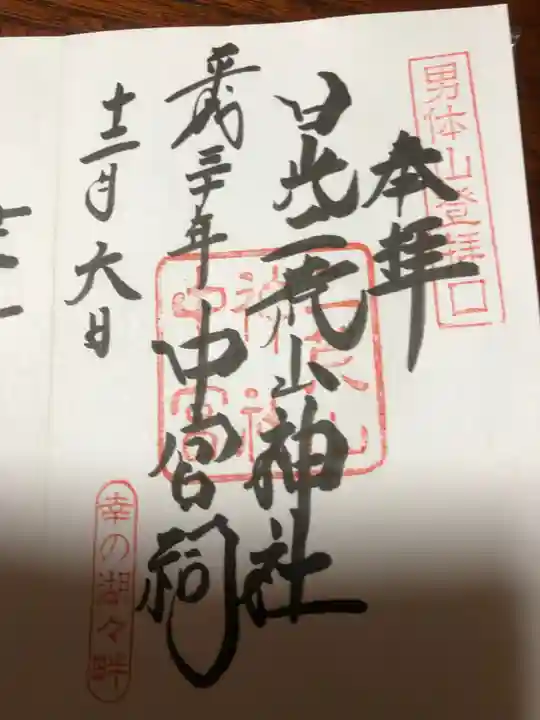 男体山登拝口
奉拝
日光二荒山神社
中宮祠
平成三十年
十二月六日
二荒山
神社
幸の湖々畔